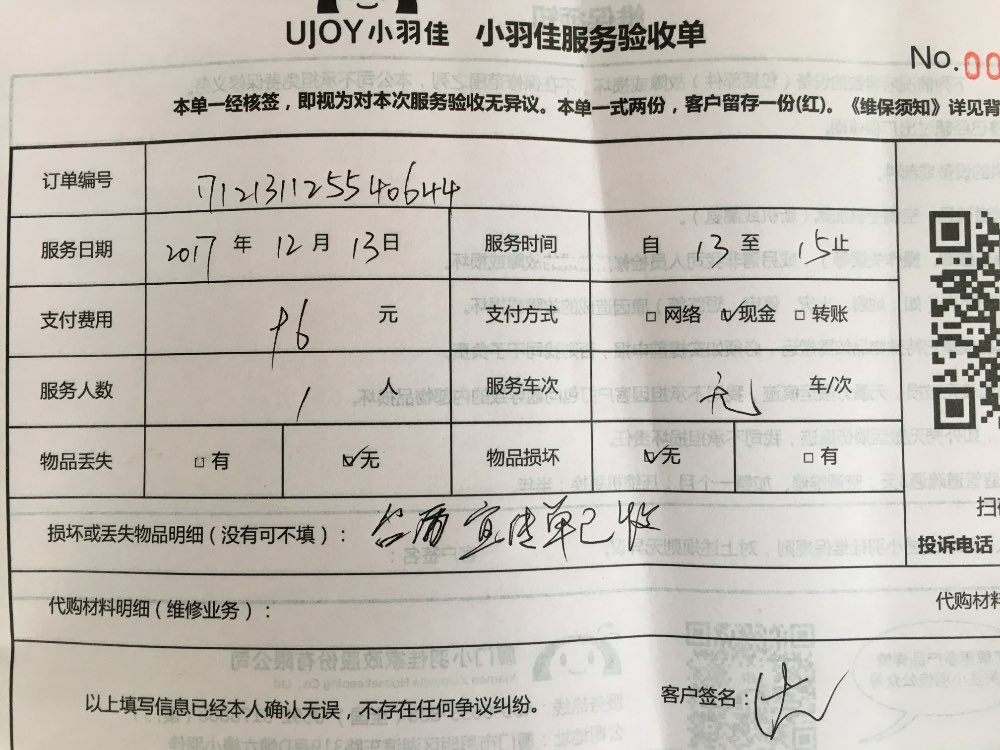 UJOY小羽佳 小羽佳服务验收单
No.00
本单一经核签，即视为对本次服务验收无异议。本单一式两份，客户留存一份(红)。《维保须知》详见背
订单编号 1712131125540644
服务日期 2017 年 12 月 13 日 服务时间 自 13 至 15 止
支付费用 76 元 支付方式 □ 网络 ☑ 现金 □ 转账
服务人数 1 人 服务车次 无 车/次
物品丢失 □ 有 ☑ 无 物品损坏 ☑ 无 □ 有
损坏或丢失物品明细（没有可不填）： 宣传单已收
扫
投诉电话
代购材料明细（维修业务）：
代购材料
以上填写信息已经本人确认无误，不存在任何争议纠纷。
客户签名：